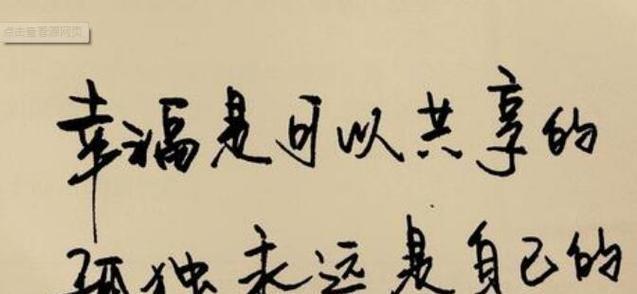 点击查看源网页
幸福是可以共享的
孤独永远是自己的